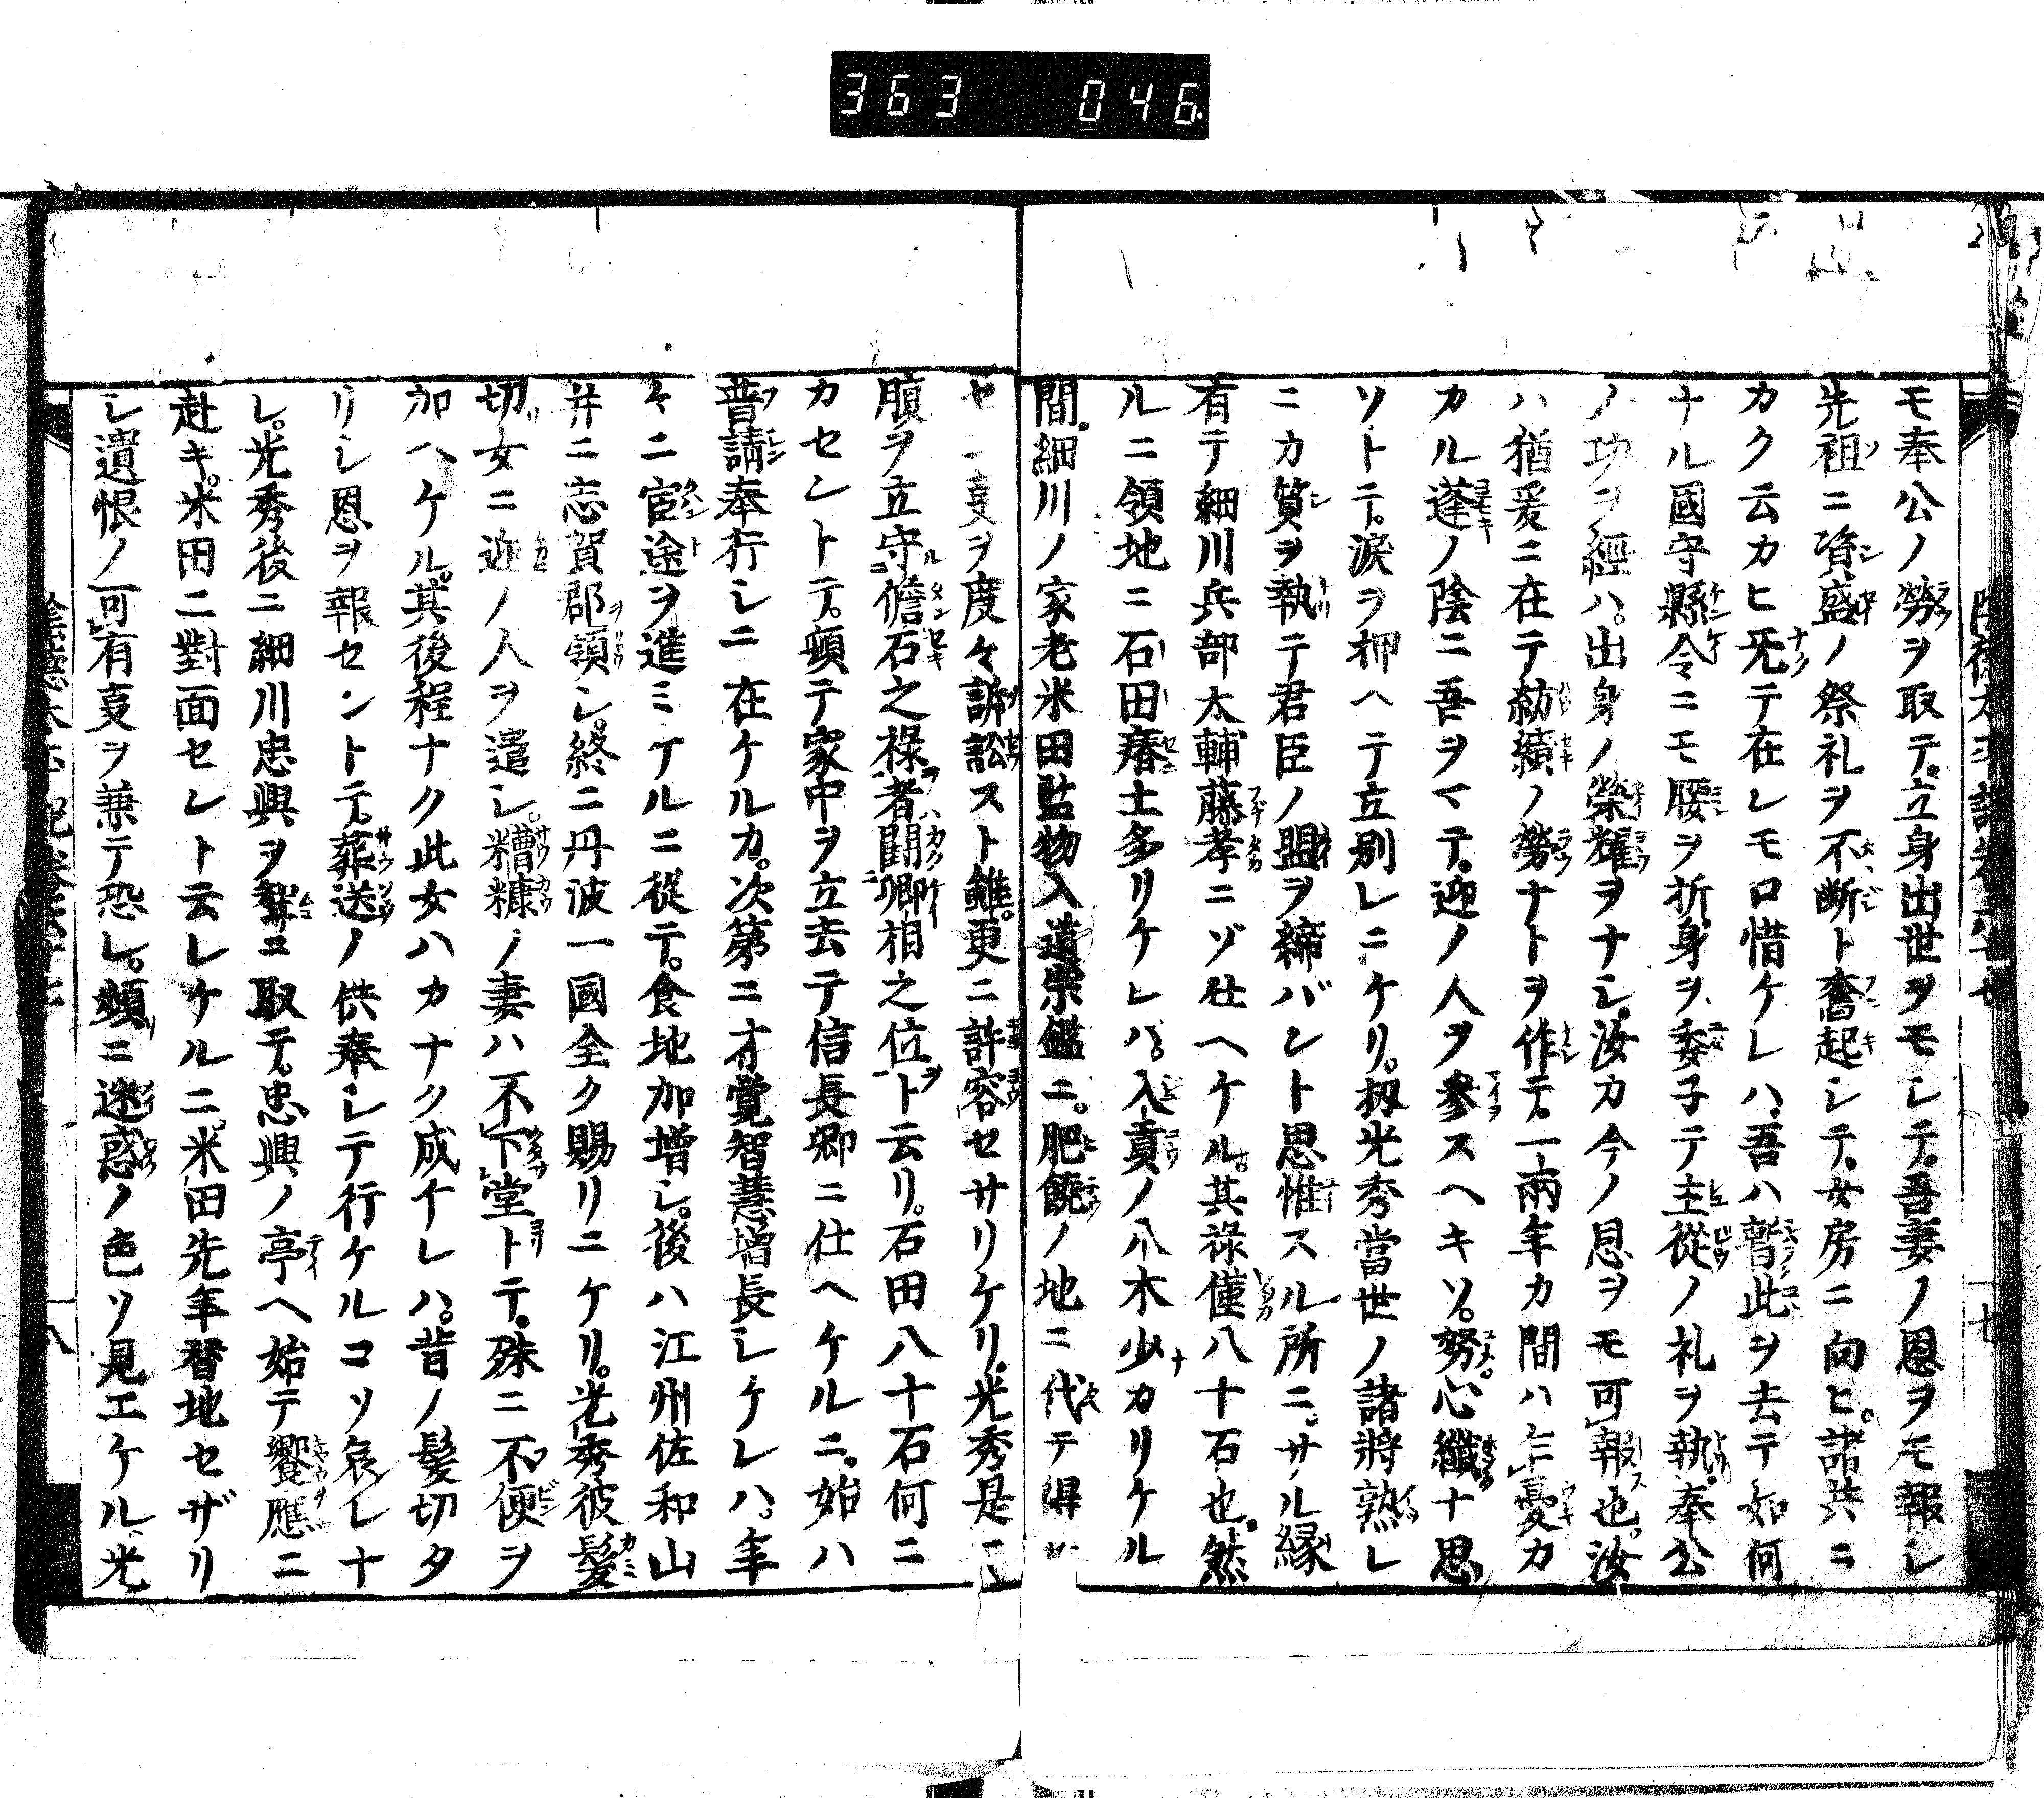 363 046
モ奉公ノ勞ヲ取テ。立身出世ヲモレテ。吾妻ノ恩ヲモ報シ
先祖ニ資盛ノ祭礼ヲ不断ト奮起シテ。女房ニ向ヒ。諸共ニ
カク云カヒ旡テ在レモロ惜ケレハ。吾ハ暫此ヲ去テ如何
ナル國守縣令ニモ腰ヲ折。身ヲ委子テ主從ノ礼ヲ執。奉公
ノ功ヲ經ハ。出身ノ榮耀ヲナシ。汝カ今ノ恩ヲモ可報也。汝
ハ猶爰ニ在テ紡績ノ勞ナトヲ作テ。一兩年カ間ハ憂カ
カル蓬ノ陰ニ吾ヲマテ。迎ノ人ヲ参スヘキソ。努心纖ナ思
ソトテ。涙ヲ押ヘテ立別レニケリ。扨光秀當世ノ諸將熟レ
ニカ質ヲ執テ君臣ノ盟ヲ締バント思惟スル所ニ。サル縁
有テ細川兵部太輔藤孝ニゾ仕ヘケル。其禄僅八十石也。然
ルニ領地ニ石田瘠土多リケレハ。入貢ノ八木少カリケル
間。細川ノ家老米田監物入道宗鑑ニ。肥饒ノ地ニ代テ得
ヤ一支ヲ度々訴訟スト雖。更ニ許容セサリケリ。光秀是ニ
腹ヲ立守儋石之禄者闘卿相之位ト云リ。石田八十石何ニ
カセントテ。頓テ家中ヲ立去テ信長卿ニ仕ヘケルニ。始ハ
普請奉行シニ在ケルカ。次第ニ才覚智慧増長シケレハ。年
々ニ宦途ヲ進ミケルニ從テ。食地加増シ。後ハ江州佐和山
并ニ志賀郡領シ。終ニ丹波一國全ク賜リニケリ。光秀彼髪
切女ニ迎ノ人ヲ遣シ。糟糠ノ妻ハ不下堂トテ。殊ニ不便ヲ
加ヘケル。其後程ナク此女ハカナク成ケレハ。昔ノ髪切タ
リシ恩ヲ報セントテ。葬送ノ供奉シテ行ケルコソ哀レナ
レ。光秀後ニ細川忠興ヲ聟ニ取テ。忠興ノ亭ヘ始テ饗應ニ
赴キ。米田ニ對面セレト云レケルニ。米田先年替地セザリ
シ遺恨ノ可有支ヲ兼テ恐レ。頻ニ迷惑ノ色ソ見エケル。光
七
八